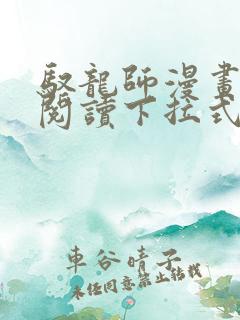 馭龍師漫畫
閱讀下拉式
車谷晴子
未经同意禁止转载